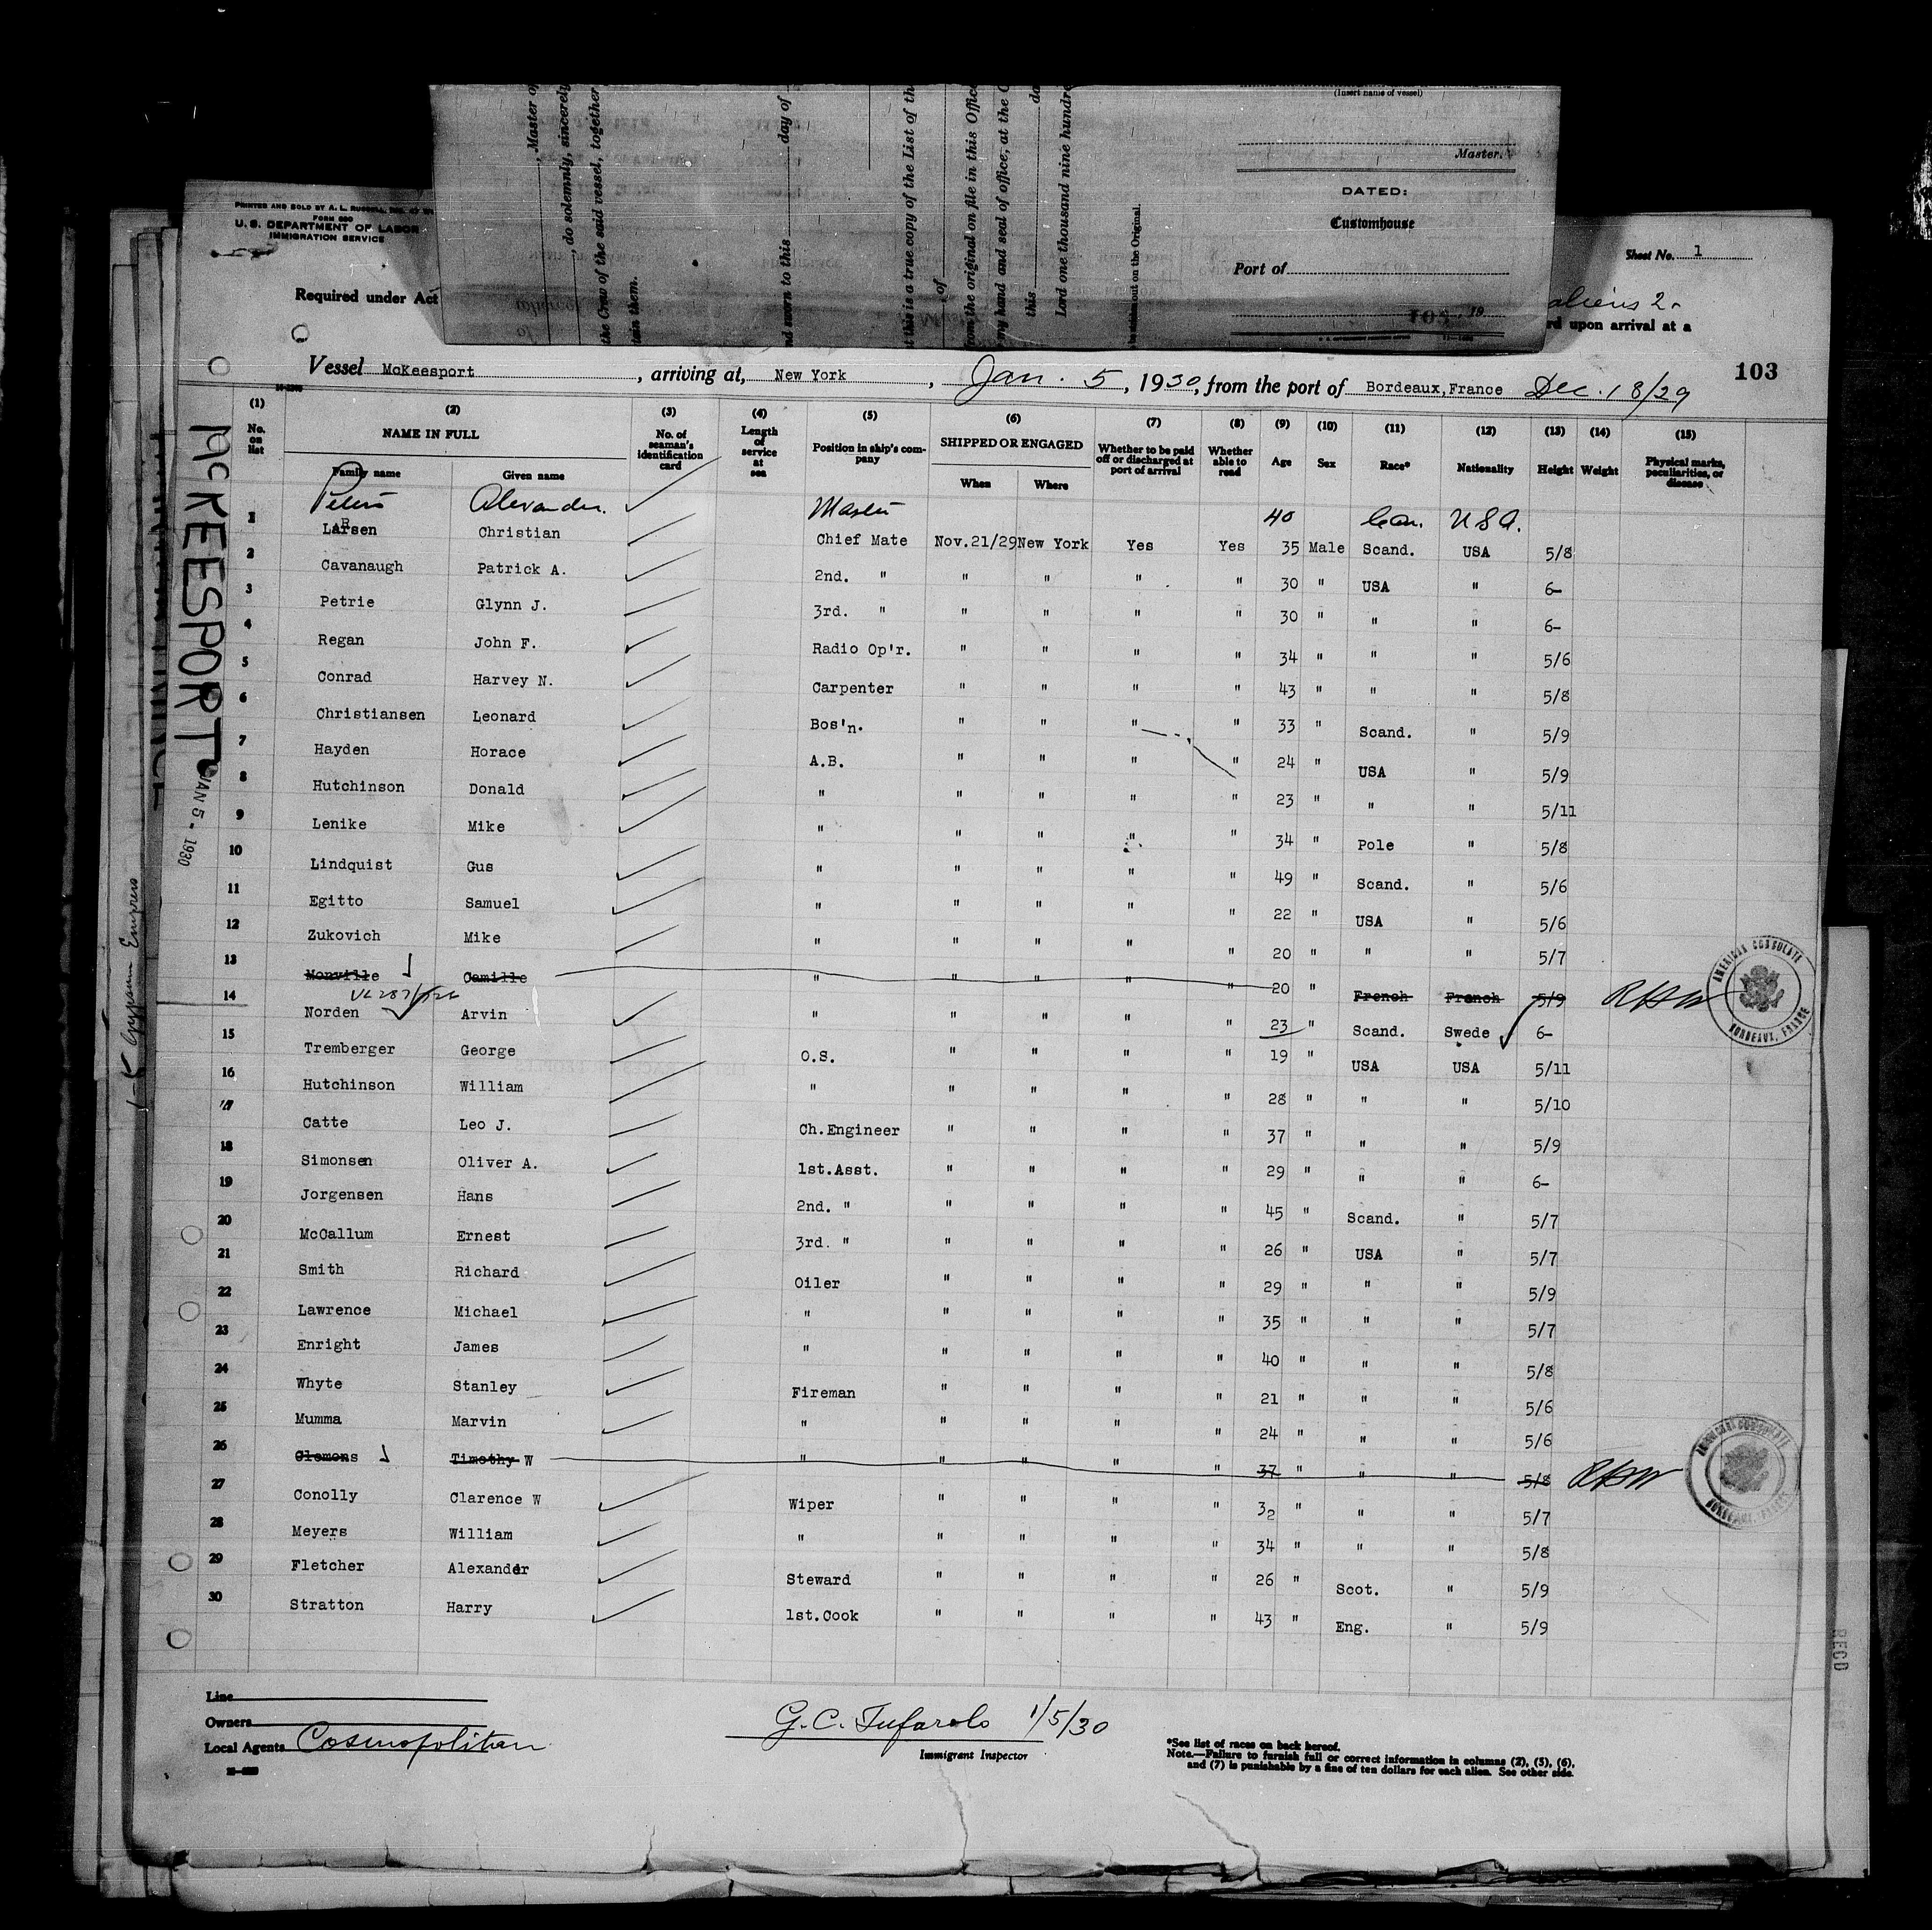 (Insert name of vessel)
Master.
DATED:
Customhouse
Port of
19
, Master of
, do solemnly, sincerely
the Crew of the said vessel, together
tain them.
nd sworn to this day of
t this is a true copy of the List of th
of
from the original on file in this Office
my hand and seal of office, at the C
this da
Lord one thousand nine hundre
out on the Original.
PRINTED AND SOLD BY A. L. RUSSELL, INC.
FORM 680
U. S. DEPARTMENT OF LABOR
IMMIGRATION SERVICE
Sheet No. 1
aliens 2
Required under Act
rd upon arrival at a
103
Vessel McKeesport, arriving at, New York, Jan. 5, 1930, from the port of Bordeaux, France Dec. 18/29
(1) (2) (3) (4) (5) (6) (7) (8) (9) (10) (11) (12) (13) (14) (15)
No. on list NAME IN FULL No. of seaman's identification card Length of service at sea Position in ship's company SHIPPED OR ENGAGED Whether to be paid off or discharged at port of arrival Whether able to read Age Sex Race* Nationality Height Weight Physical marks, peculiarities, or disease
Family name Given name When Where
Peters Alexander. Master 40 USA.
1 Larsen Christian Chief Mate Nov.21/29 New York Yes Yes 35 Male Scand. USA 5/8
2 Cavanaugh Patrick A. 2nd. " " " " " 30 " USA " 6-
3 Petrie Glynn J. 3rd. " " " " " 30 " " " 6-
4 Regan John F. Radio Op'r. " " " " 34 " " " 5/6
5 Conrad Harvey N. Carpenter " " " " 43 " " " 5/8
6 Christiansen Leonard Bos'n. " " " " 33 " Scand. " 5/9
7 Hayden Horace A.B. " " " " 24 " USA " 5/9
8 Hutchinson Donald " " " " " 23 " " " 5/11
9 Lenike Mike " " " " " 34 " Pole " 5/8
10 Lindquist Gus " " " " " 49 " Scand. " 5/6
11 Egitto Samuel " " " " " 22 " USA " 5/6
12 Zukovich Mike " " " " " 20 " " " 5/7
13 Monville Camille " " " " " 20 " French French 5/9 RHW
14 Norden Arvin " " " " " 23 " Scand. Swede 6-
15 Tremberger George O.S. " " " " 19 " USA USA 5/11
16 Hutchinson William " " " " " 28 " " " 5/10
17 Catte Leo J. Ch.Engineer " " " " 37 " " " 5/9
18 Simonsen Oliver A. 1st.Asst. " " " " 29 " " " 6-
19 Jorgensen Hans 2nd. " " " " " 45 " Scand. " 5/7
20 McCallum Ernest 3rd. " " " " " 26 " USA " 5/7
21 Smith Richard Oiler " " " " 29 " " " 5/9
22 Lawrence Michael " " " " " 35 " " " 5/7
23 Enright James " " " " " 40 " " " 5/8
24 Whyte Stanley Fireman " " " " 21 " " " 5/6
25 Mumma Marvin " " " " " 24 " " " 5/6
26 Clemons Timothy W " " " " " 37 " " " 5/8 RHW
27 Conolly Clarence W Wiper " " " " 32 " " " 5/7
28 Meyers William " " " " " 34 " " " 5/8
29 Fletcher Alexander Steward " " " " 26 " Scot. " 5/9
30 Stratton Harry 1st.Cook " " " " 43 " Eng. " 5/9
AMERICAN CONSULATE
BORDEAUX, FRANCE
AMERICAN CONSULATE
BORDEAUX, FRANCE
McKEESPORT
JAN 5 - 1930
Gypsum Empress
RECD
Line
Owners
Local Agents Cosmopolitan
G. C. Tufarolo 1/5/30
Immigrant Inspector
*See list of races on back hereof.
Note.—Failure to furnish full or correct information in columns (2), (5), (6),
and (7) is punishable by a fine of ten dollars for each alien. See other side.